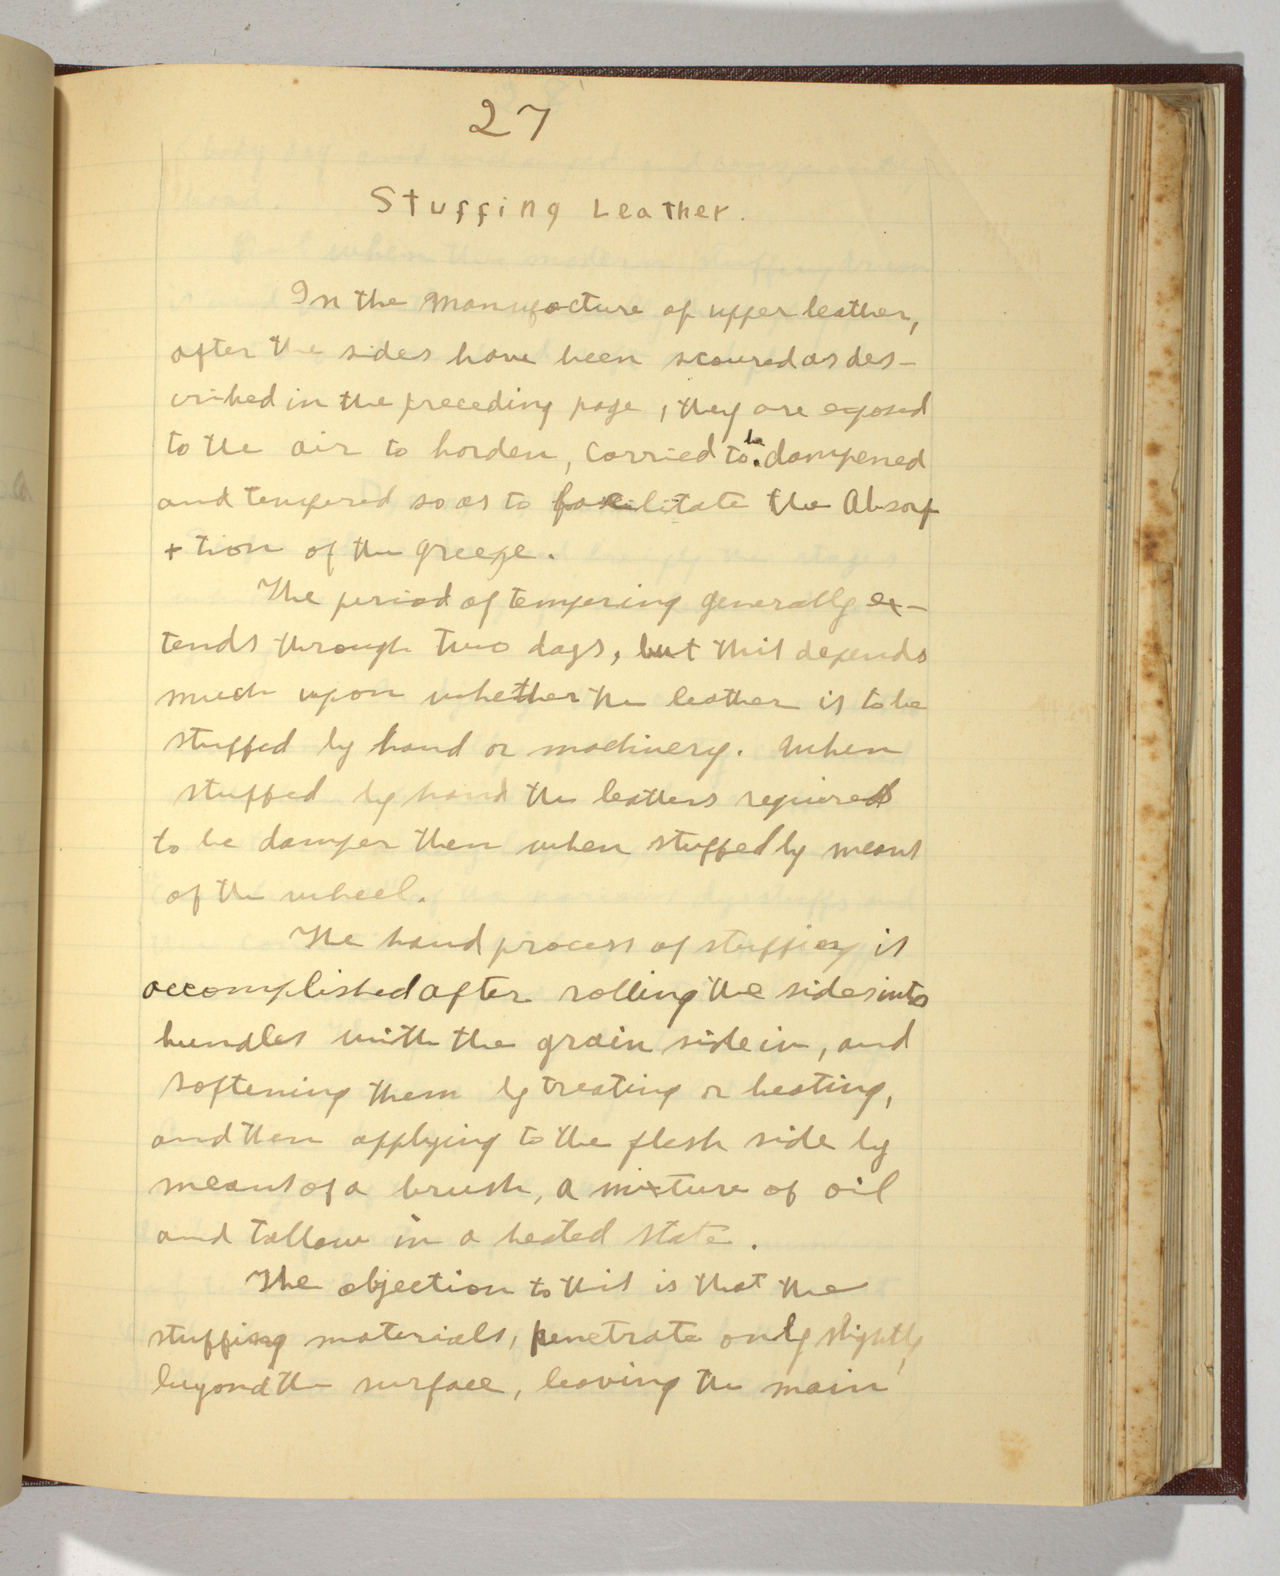 27
Stuffing Leather.
In the manufacture of upper leather,
after the sides have been scoured as des-
cribed in the preceding page, they are exposed
to the air to harden, carried to be dampened
and tempered so as to facilitate the Absorp
+ tion of the greese.
The period of tempering generally ex-
tends through two days, but this depends
much upon whether the leather is to be
stuffed by hand or machinery. When
stuffed by hand the leathers requires
to be damper then when stuffed by means
of the wheel.
The hand process of stuffing is
accomplished after rolling the sides into
bundles with the grain side in, and
softening them by treating or beating,
and then applying to the flesh side by
means of a brush, a mixture of oil
and tallow in a heated state.
The objection to this is that the
stuffing materials, penetrate only slightly
beyond the surface, leaving the main